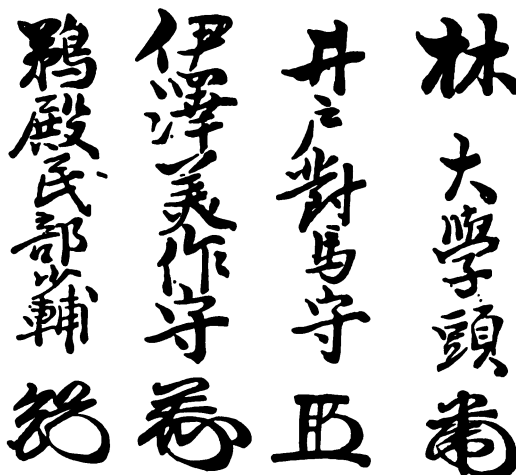 林大學頭
井戸對馬守
伊澤美作守
鵜殿民部少輔